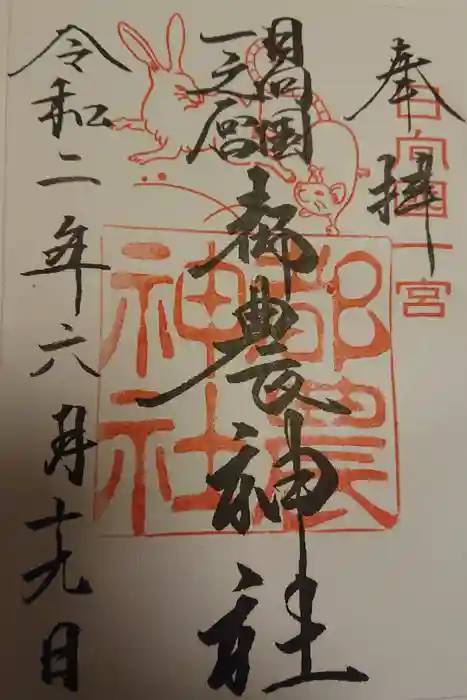 奉拝
日向国一宮
日向国
一之宮
都農神社
都農神社
令和二年六月十九日